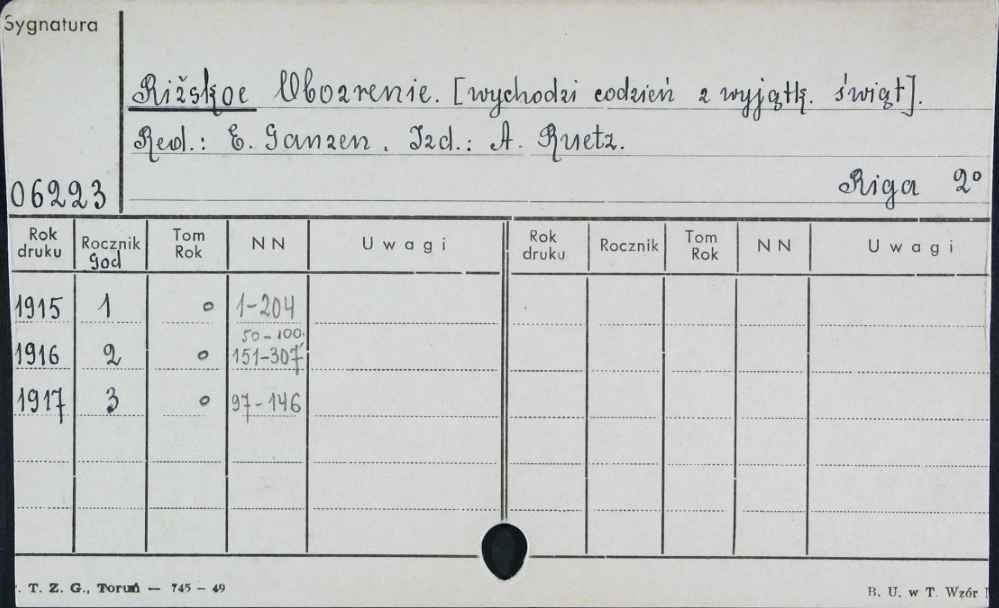 Sygnatura
Rižskoe Obozrenie. [wychodzi codzień z wyjątk. świąt].
Red.: E. Ganzen. Izd.: A. Ruetz.
06223
Riga 2°
Rok druku Rocznik God Tom Rok NN Uwagi Rok druku Rocznik Tom Rok NN Uwagi
1915 1 o 1-204
50-100.
1916 2 o 151-307
1917 3 o 97-146
. T. Z. G., Toruń — 745 - 49
B. U. w T. Wzór